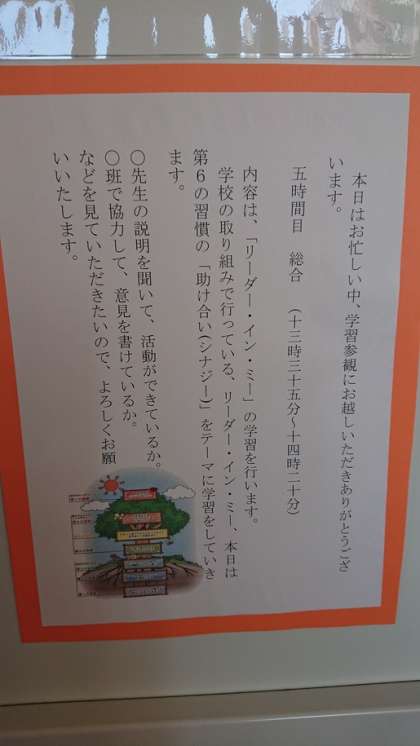 本日はお忙しい中、学習参観にお越しいただきありがとうござ
います。
五時間目　総合　(十三時三十五分～十四時二十分)
内容は、「リーダー・イン・ミー」の学習を行います。
学校の取り組みで行っている、リーダー・イン・ミー、本日は
第6の習慣の「助け合い(シナジー)」をテーマに学習をしていき
ます。
〇先生の説明を聞いて、活動ができているか。
〇班で協力して、意見を書けているか。
などを見ていただきたいので、よろしくお願
いいたします。